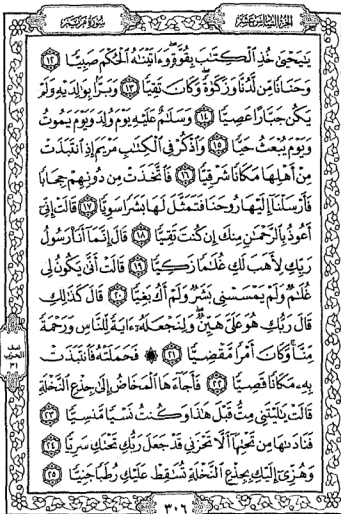 الجزء السادس عشر
سورة مريم
يَٰيَحْيَىٰ خُذِ ٱلْكِتَٰبَ بِقُوَّةٍ وَءَاتَيْنَٰهُ ٱلْحُكْمَ صَبِيًّا ١٢
وَحَنَانًا مِّن لَّدُنَّا وَزَكَوٰةً وَكَانَ تَقِيًّا ١٣ وَبَرًّۢا بِوَٰلِدَيْهِ وَلَمْ
يَكُن جَبَّارًا عَصِيًّا ١٤ وَسَلَٰمٌ عَلَيْهِ يَوْمَ وُلِدَ وَيَوْمَ يَمُوتُ
وَيَوْمَ يُبْعَثُ حَيًّا ١٥ وَٱذْكُرْ فِى ٱلْكِتَٰبِ مَرْيَمَ إِذِ ٱنتَبَذَتْ
مِنْ أَهْلِهَا مَكَانًا شَرْقِيًّا ١٦ فَٱتَّخَذَتْ مِن دُونِهِمْ حِجَابًا
فَأَرْسَلْنَآ إِلَيْهَا رُوحَنَا فَتَمَثَّلَ لَهَا بَشَرًا سَوِيًّا ١٧ قَالَتْ إِنِّىٓ
أَعُوذُ بِٱلرَّحْمَٰنِ مِنكَ إِن كُنتَ تَقِيًّا ١٨ قَالَ إِنَّمَآ أَنَا۠ رَسُولُ
رَبِّكِ لِأَهَبَ لَكِ غُلَٰمًا زَكِيًّا ١٩ قَالَتْ أَنَّىٰ يَكُونُ لِى
غُلَٰمٌ وَلَمْ يَمْسَسْنِى بَشَرٌ وَلَمْ أَكُ بَغِيًّا ٢٠ قَالَ كَذَٰلِكِ
قَالَ رَبُّكِ هُوَ عَلَىَّ هَيِّنٌ وَلِنَجْعَلَهُۥٓ ءَايَةً لِّلنَّاسِ وَرَحْمَةً
مِّنَّا وَكَانَ أَمْرًا مَّقْضِيًّا ٢١ ۞ فَحَمَلَتْهُ فَٱنتَبَذَتْ
بِهِۦ مَكَانًا قَصِيًّا ٢٢ فَأَجَآءَهَا ٱلْمَخَاضُ إِلَىٰ جِذْعِ ٱلنَّخْلَةِ
قَالَتْ يَٰلَيْتَنِى مِتُّ قَبْلَ هَٰذَا وَكُنتُ نَسْيًا مَّنسِيًّا ٢٣
فَنَادَىٰهَا مِن تَحْتِهَآ أَلَّا تَحْزَنِى قَدْ جَعَلَ رَبُّكِ تَحْتَكِ سَرِيًّا ٢٤
وَهُزِّىٓ إِلَيْكِ بِجِذْعِ ٱلنَّخْلَةِ تُسَٰقِطْ عَلَيْكِ رُطَبًا جَنِيًّا ٢٥
نصف
الحزب
٣١
٣٠٦